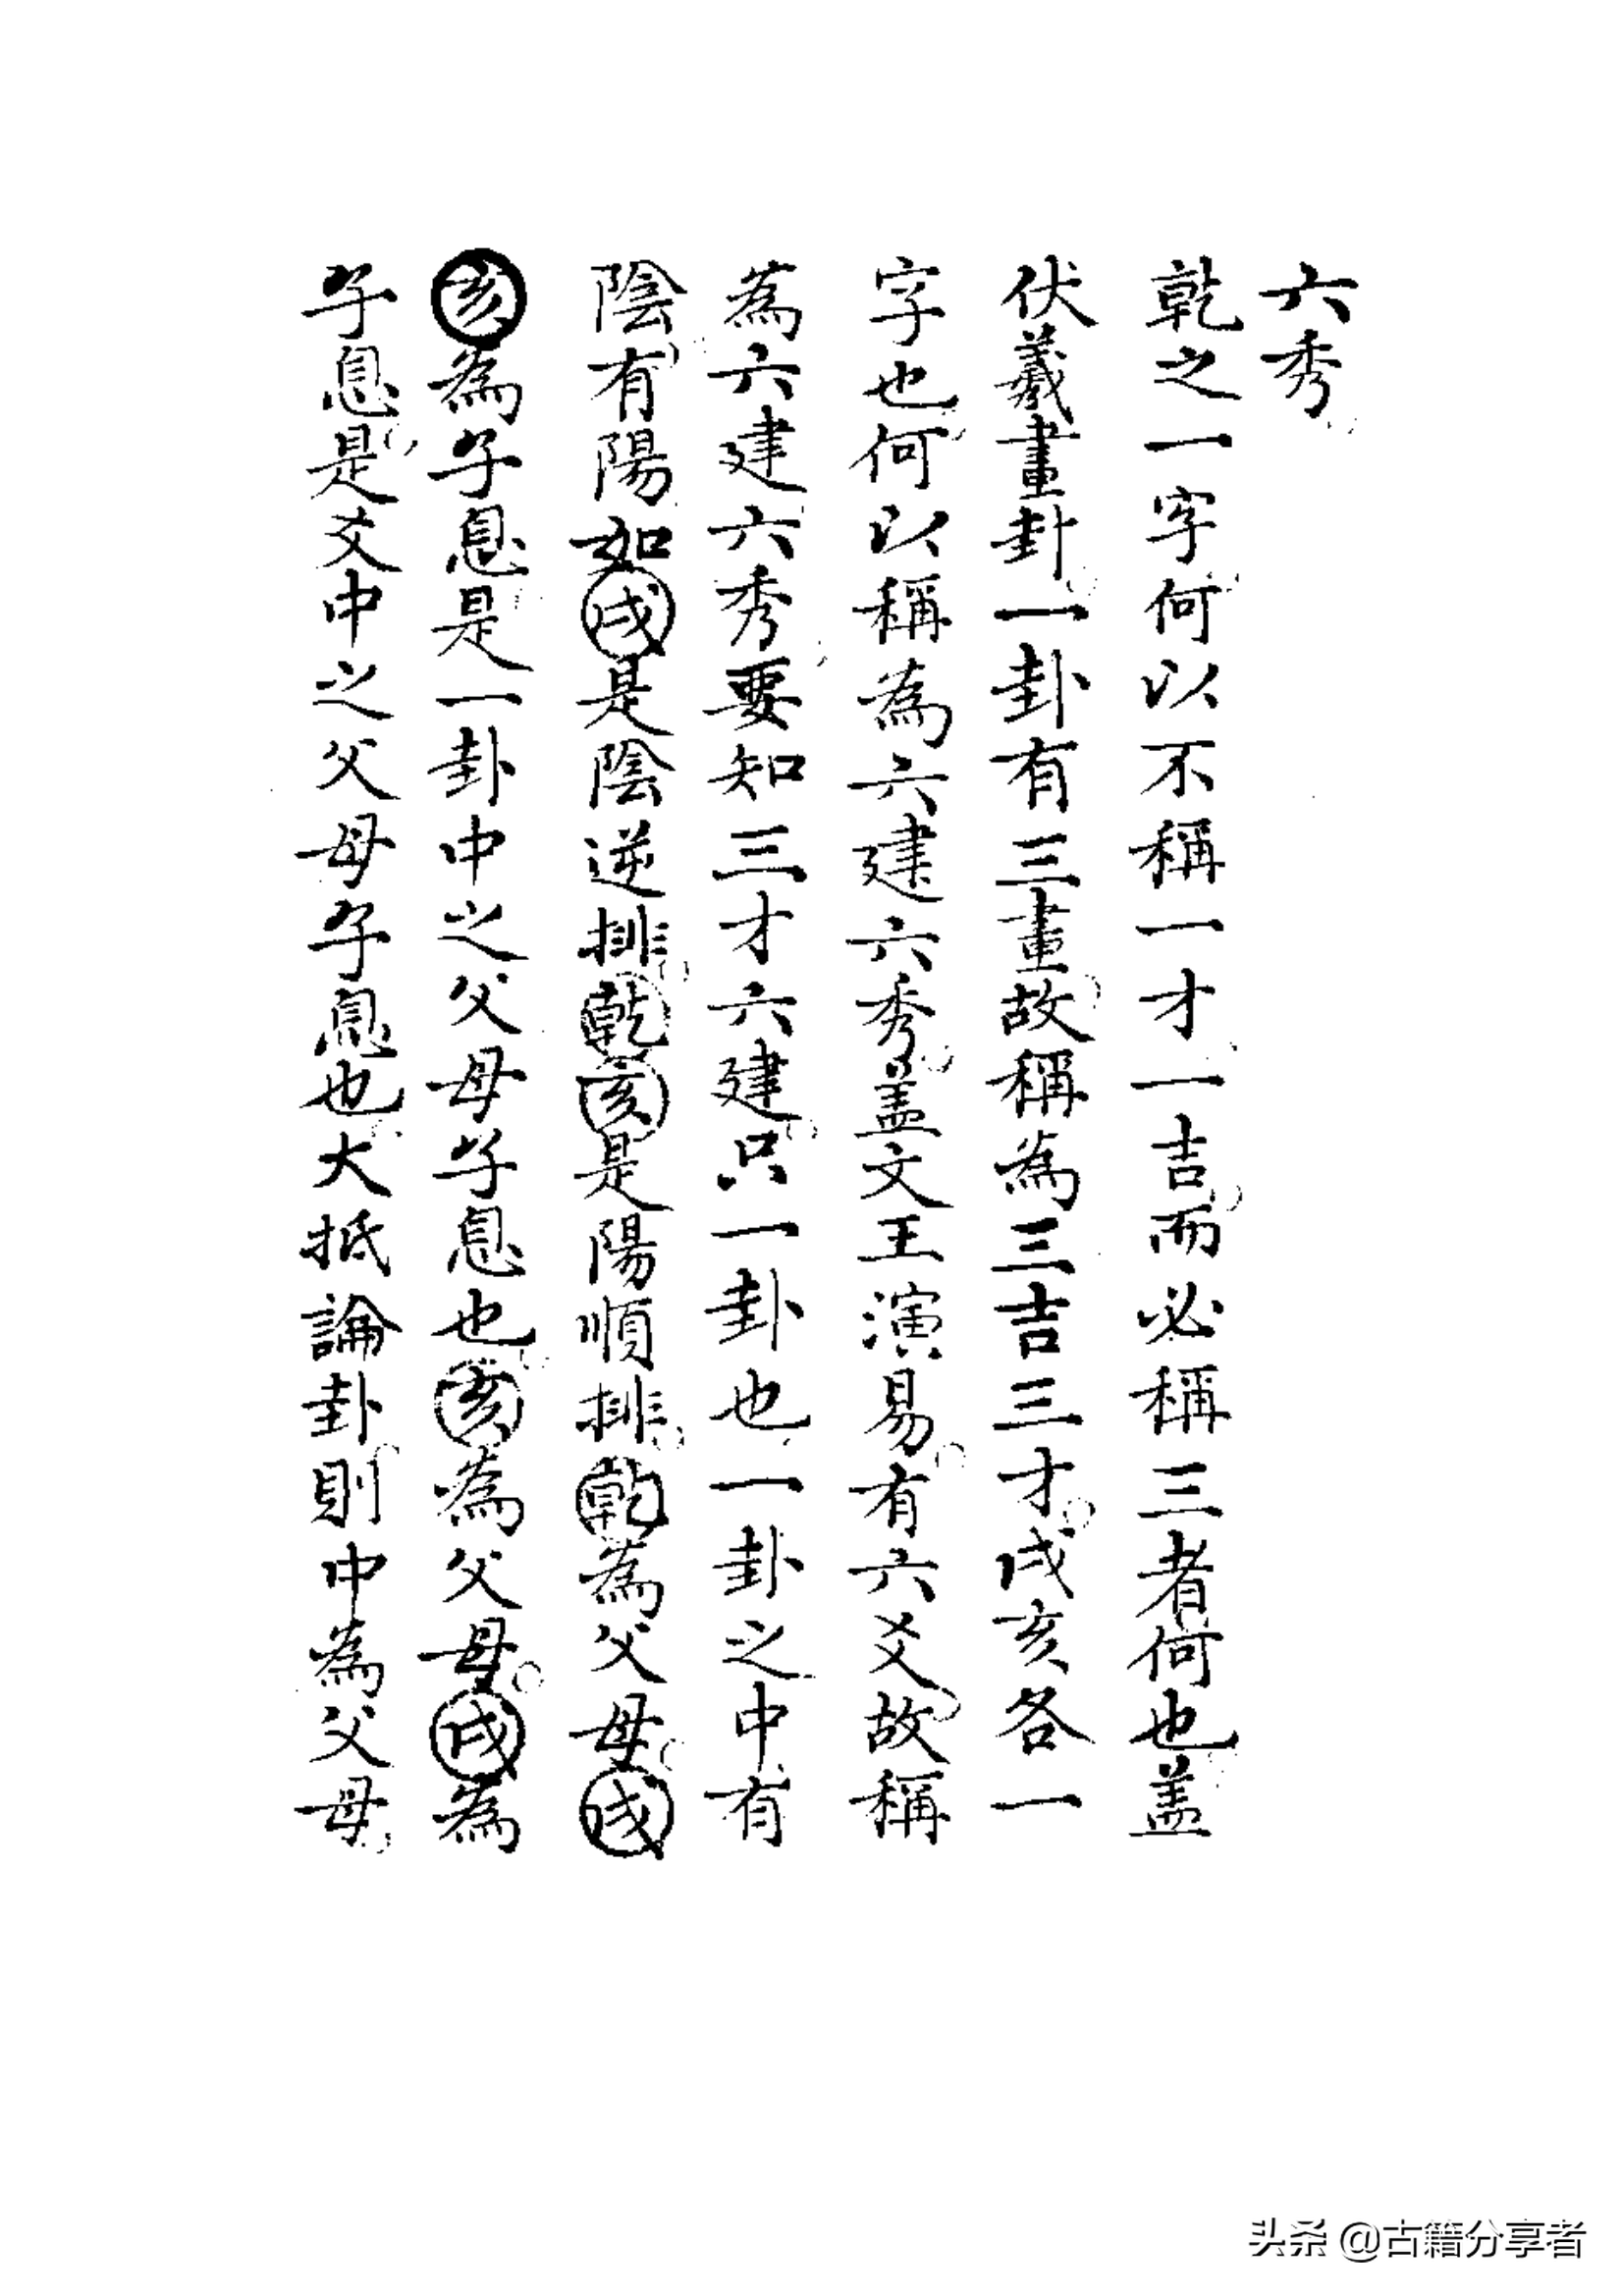 六秀
乾之一字何以不稱一才一吉而必稱三者何也盖
伏羲畫卦一卦有三畫故稱為三吉三才戌亥各一
字也何以稱為六建六秀盖文王演易有六爻故稱
為六建六秀要知三才六建只一卦也一卦之中有
陰有陽如戌是陰逆排乾亥是陽順排乾為父母戌
亥為子息是一卦中之父母子息也亥為父母戌為
子息是爻中之父母子息也大抵論卦則中為父母
头条 @古籍分享者